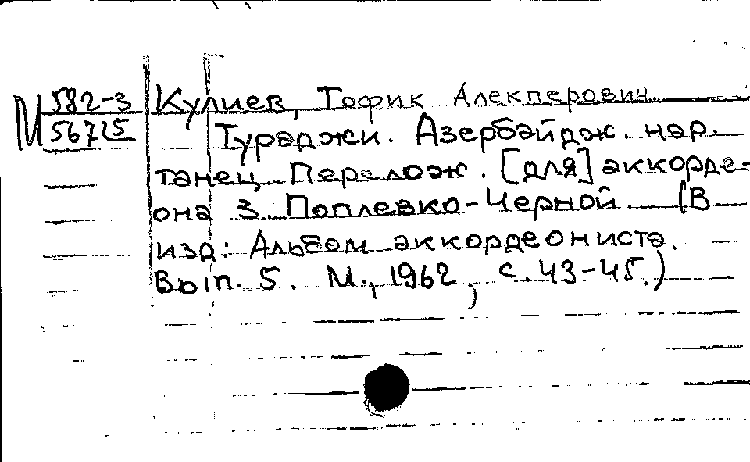 М 582-3 Кулиев, Тофик Алекперович
56725 Тураджи. Азербайдж. нар.
танец. Перелож. [для] аккорде-
она З. Поплевко-Черной. (В
изд: Альбом аккордеониста.
Вып. 5. М., 1962, с. 43-45.)